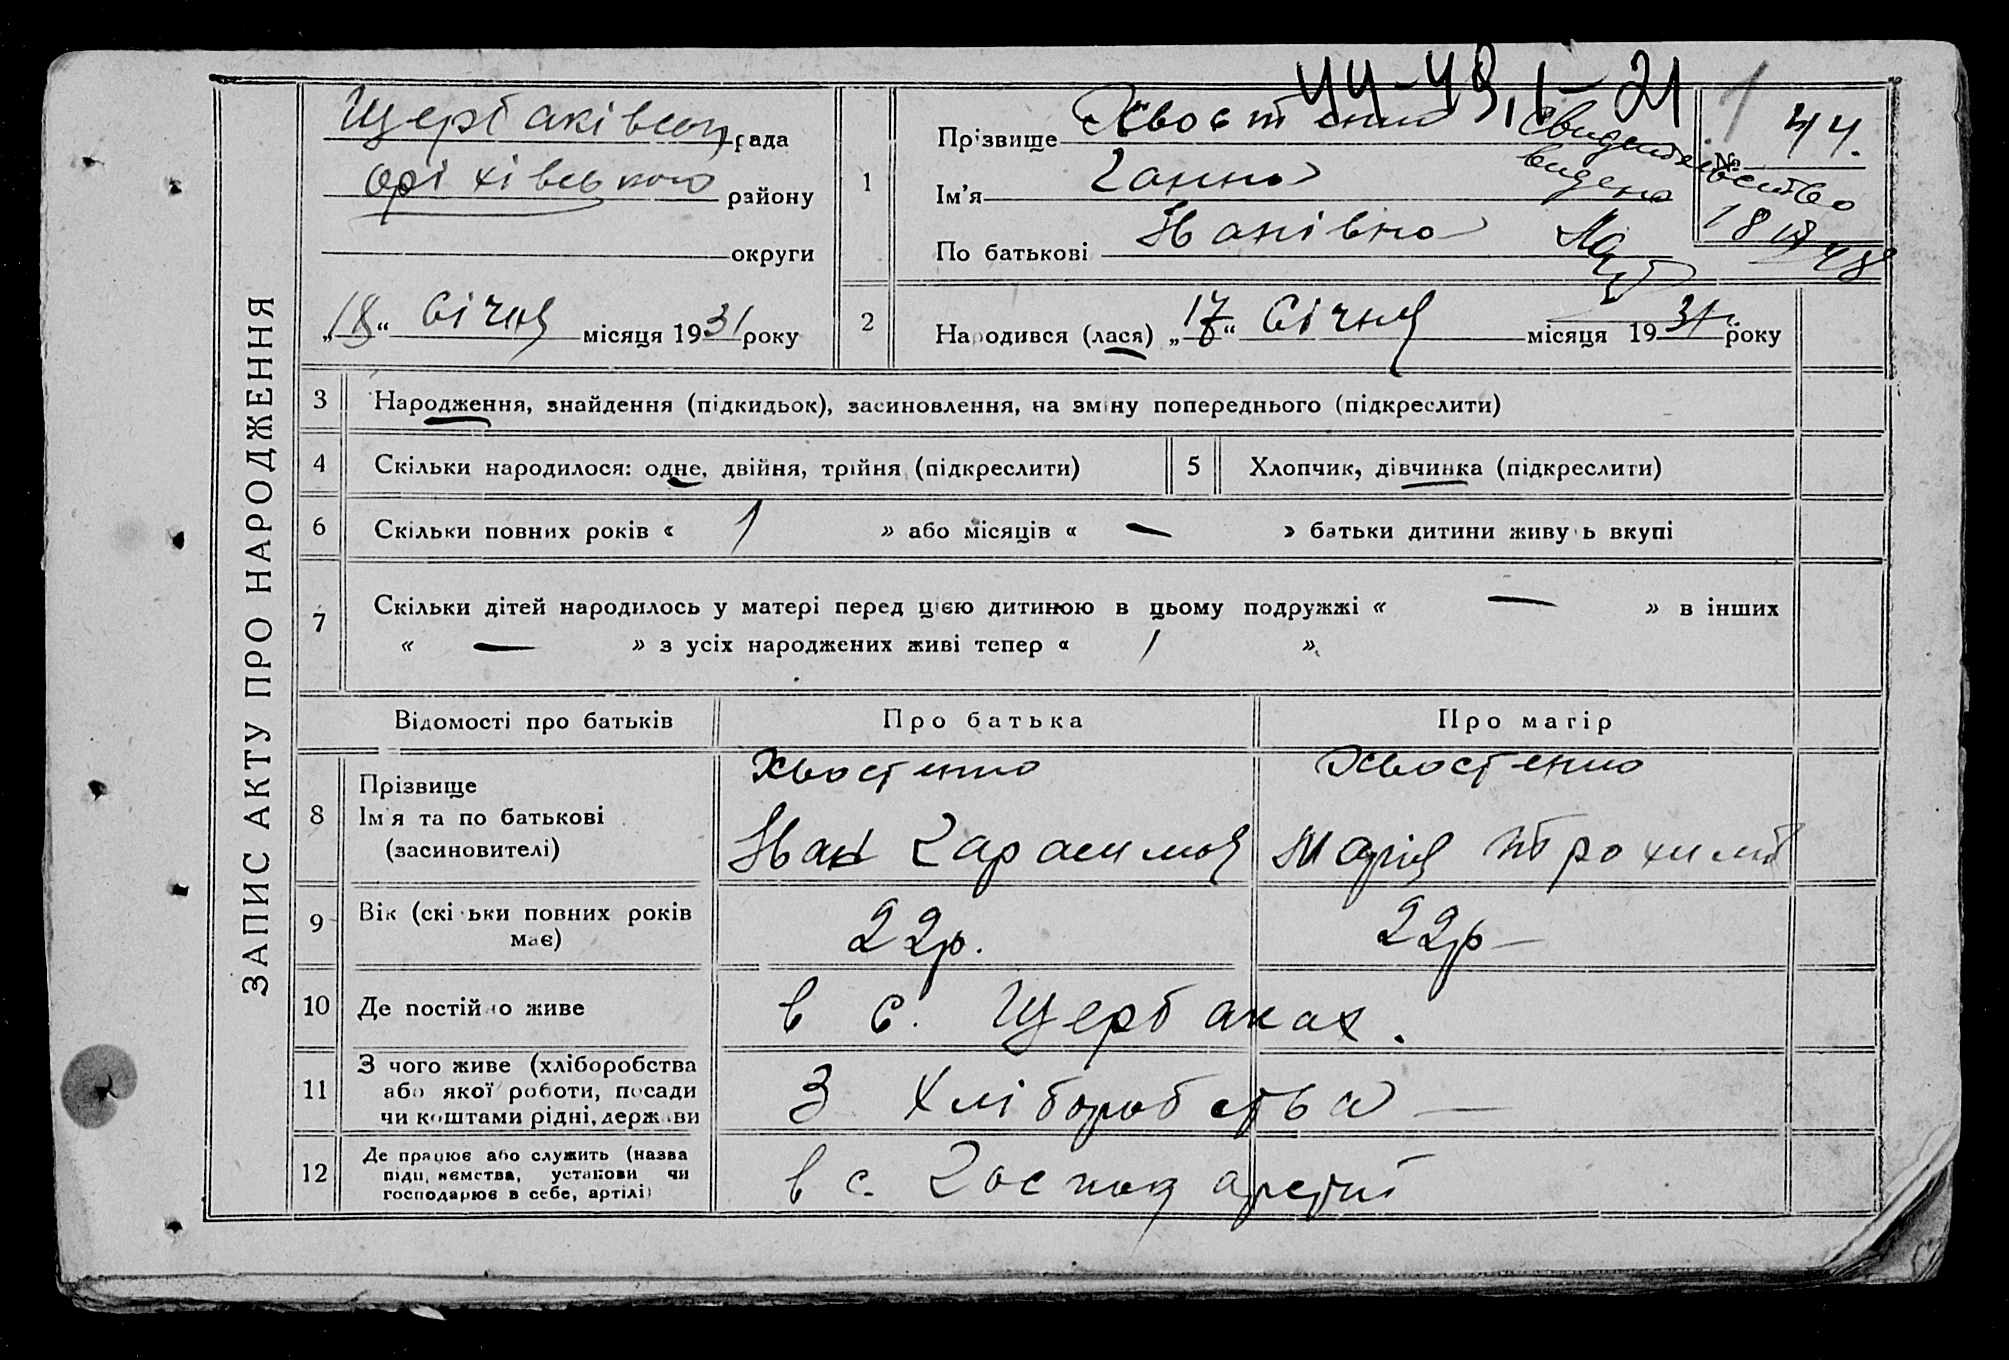 44-49, 1-21
ЗАПИС АКТУ ПРО НАРОДЖЕННЯ
Щербаківської рада
Оріхівського району
округи
„18“ Січня місяця 1931 року
1
Прізвище Хвостенко
Ім'я Ганна
По батькові Іванівна
1
№ 44.
Свидетельство
видено
18 48
2
Народився (лася) „17“ Січня місяця 1931 року
3 Народження, знайдення (підкидьок), засиновлення, на зміну попереднього (підкреслити)
4 Скільки народилося: одне, двійня, трійня (підкреслити)
5 Хлопчик, дівчинка (підкреслити)
6 Скільки повних років « 1 » або місяців « — » батьки дитини живуть вкупі
7 Скільки дітей народилось у матері перед цією дитиною в цьому подружжі « — » в інших
« — » з усіх народжених живі тепер « 1 »
Відомості про батьків Про батька Про матір
8 Прізвище
Ім'я та по батькові
(засиновителі)
Хвостенко
Іван Гарасимов
Хвостенко
Марія Трохим
9 Вік (скільки повних років
має)
22р.
22р —
10 Де постійно живе
в с. Щербаках.
11 З чого живе (хліборобства
або якої роботи, посади
чи коштами рідні, держави
З Хліборобства —
12 Де працює або служить (назва
підприємства, установи чи
господарює в себе, артілі)
в с.